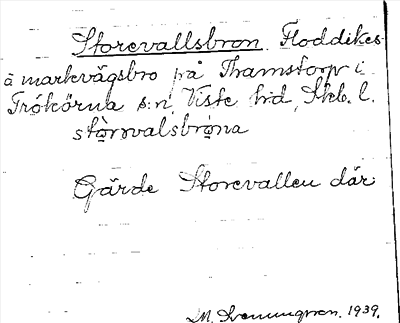 Storevallsbron. Floddikes-
å markvägsbro på Thamstorp i
Trökörna s:n, Viste hd, Skb. l.
storvalsbrona
Gärde Storevallen där
M. 1939.